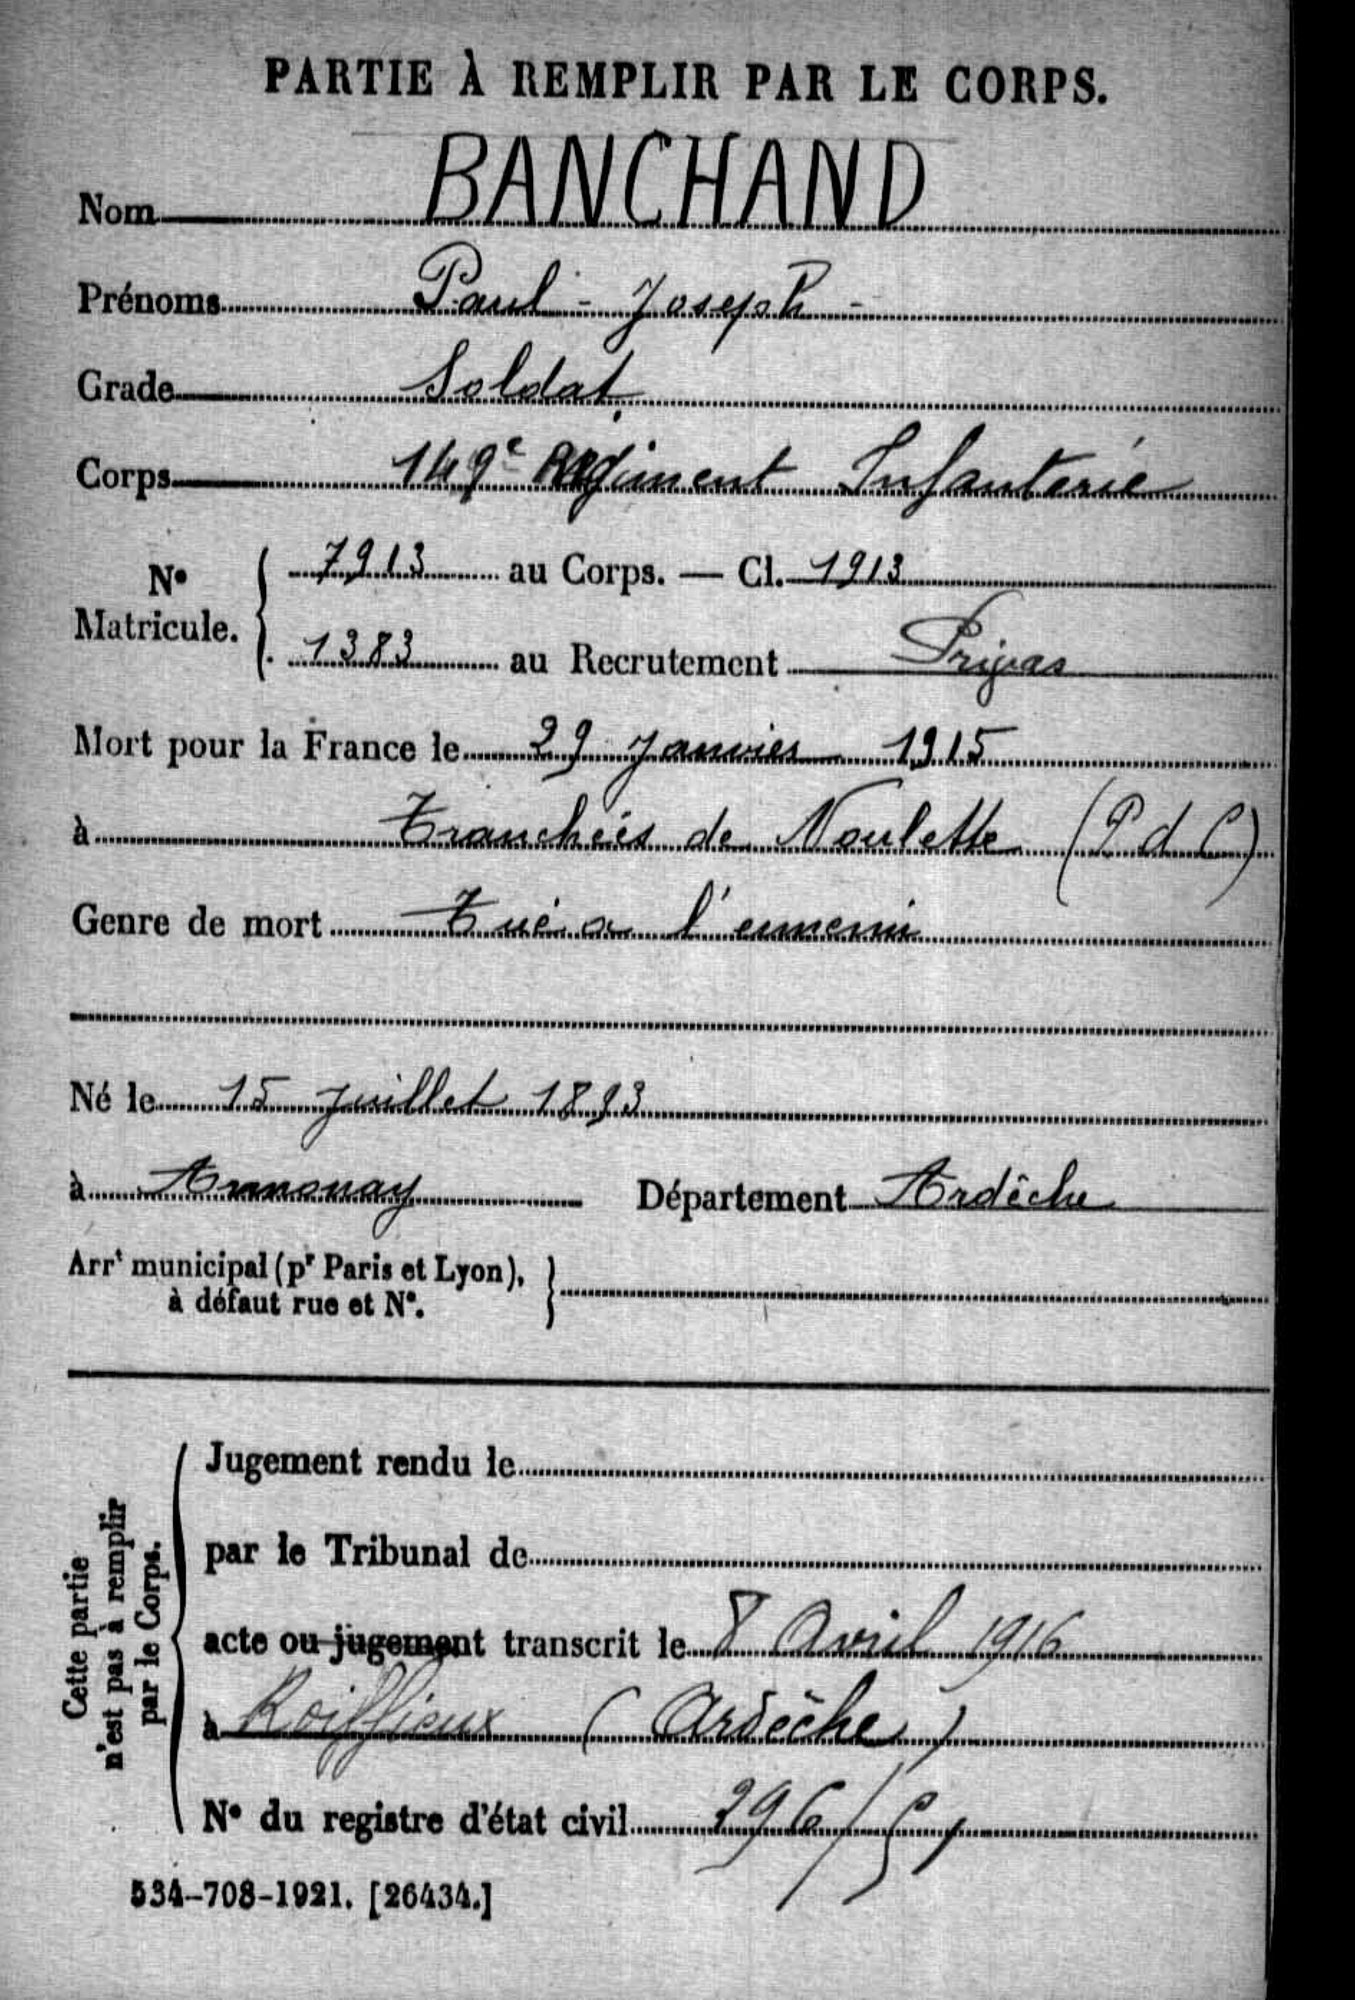 PARTIE À REMPLIR PAR LE CORPS.
Nom BANCHAND
Prénoms Paul - Joseph -
Grade Soldat
Corps 149e Régiment Infanterie
N° Matricule. { 7913 au Corps. — Cl. 1913
1383 au Recrutement Privas
Mort pour la France le 29 Janvier 1915
à Tranchées de Noulette (P d C)
Genre de mort Tué a l'ennemi
Né le 15 Juillet 1893
à Annonay Département Ardèche
Arrt municipal (pr Paris et Lyon), à défaut rue et N°. }
Cette partie n'est pas à remplir par le Corps.
Jugement rendu le
par le Tribunal de
acte ou jugement transcrit le 8 Avril 1916
à Roiffieux (Ardèche)
N° du registre d'état civil 296/
534-708-1921. [26434.]